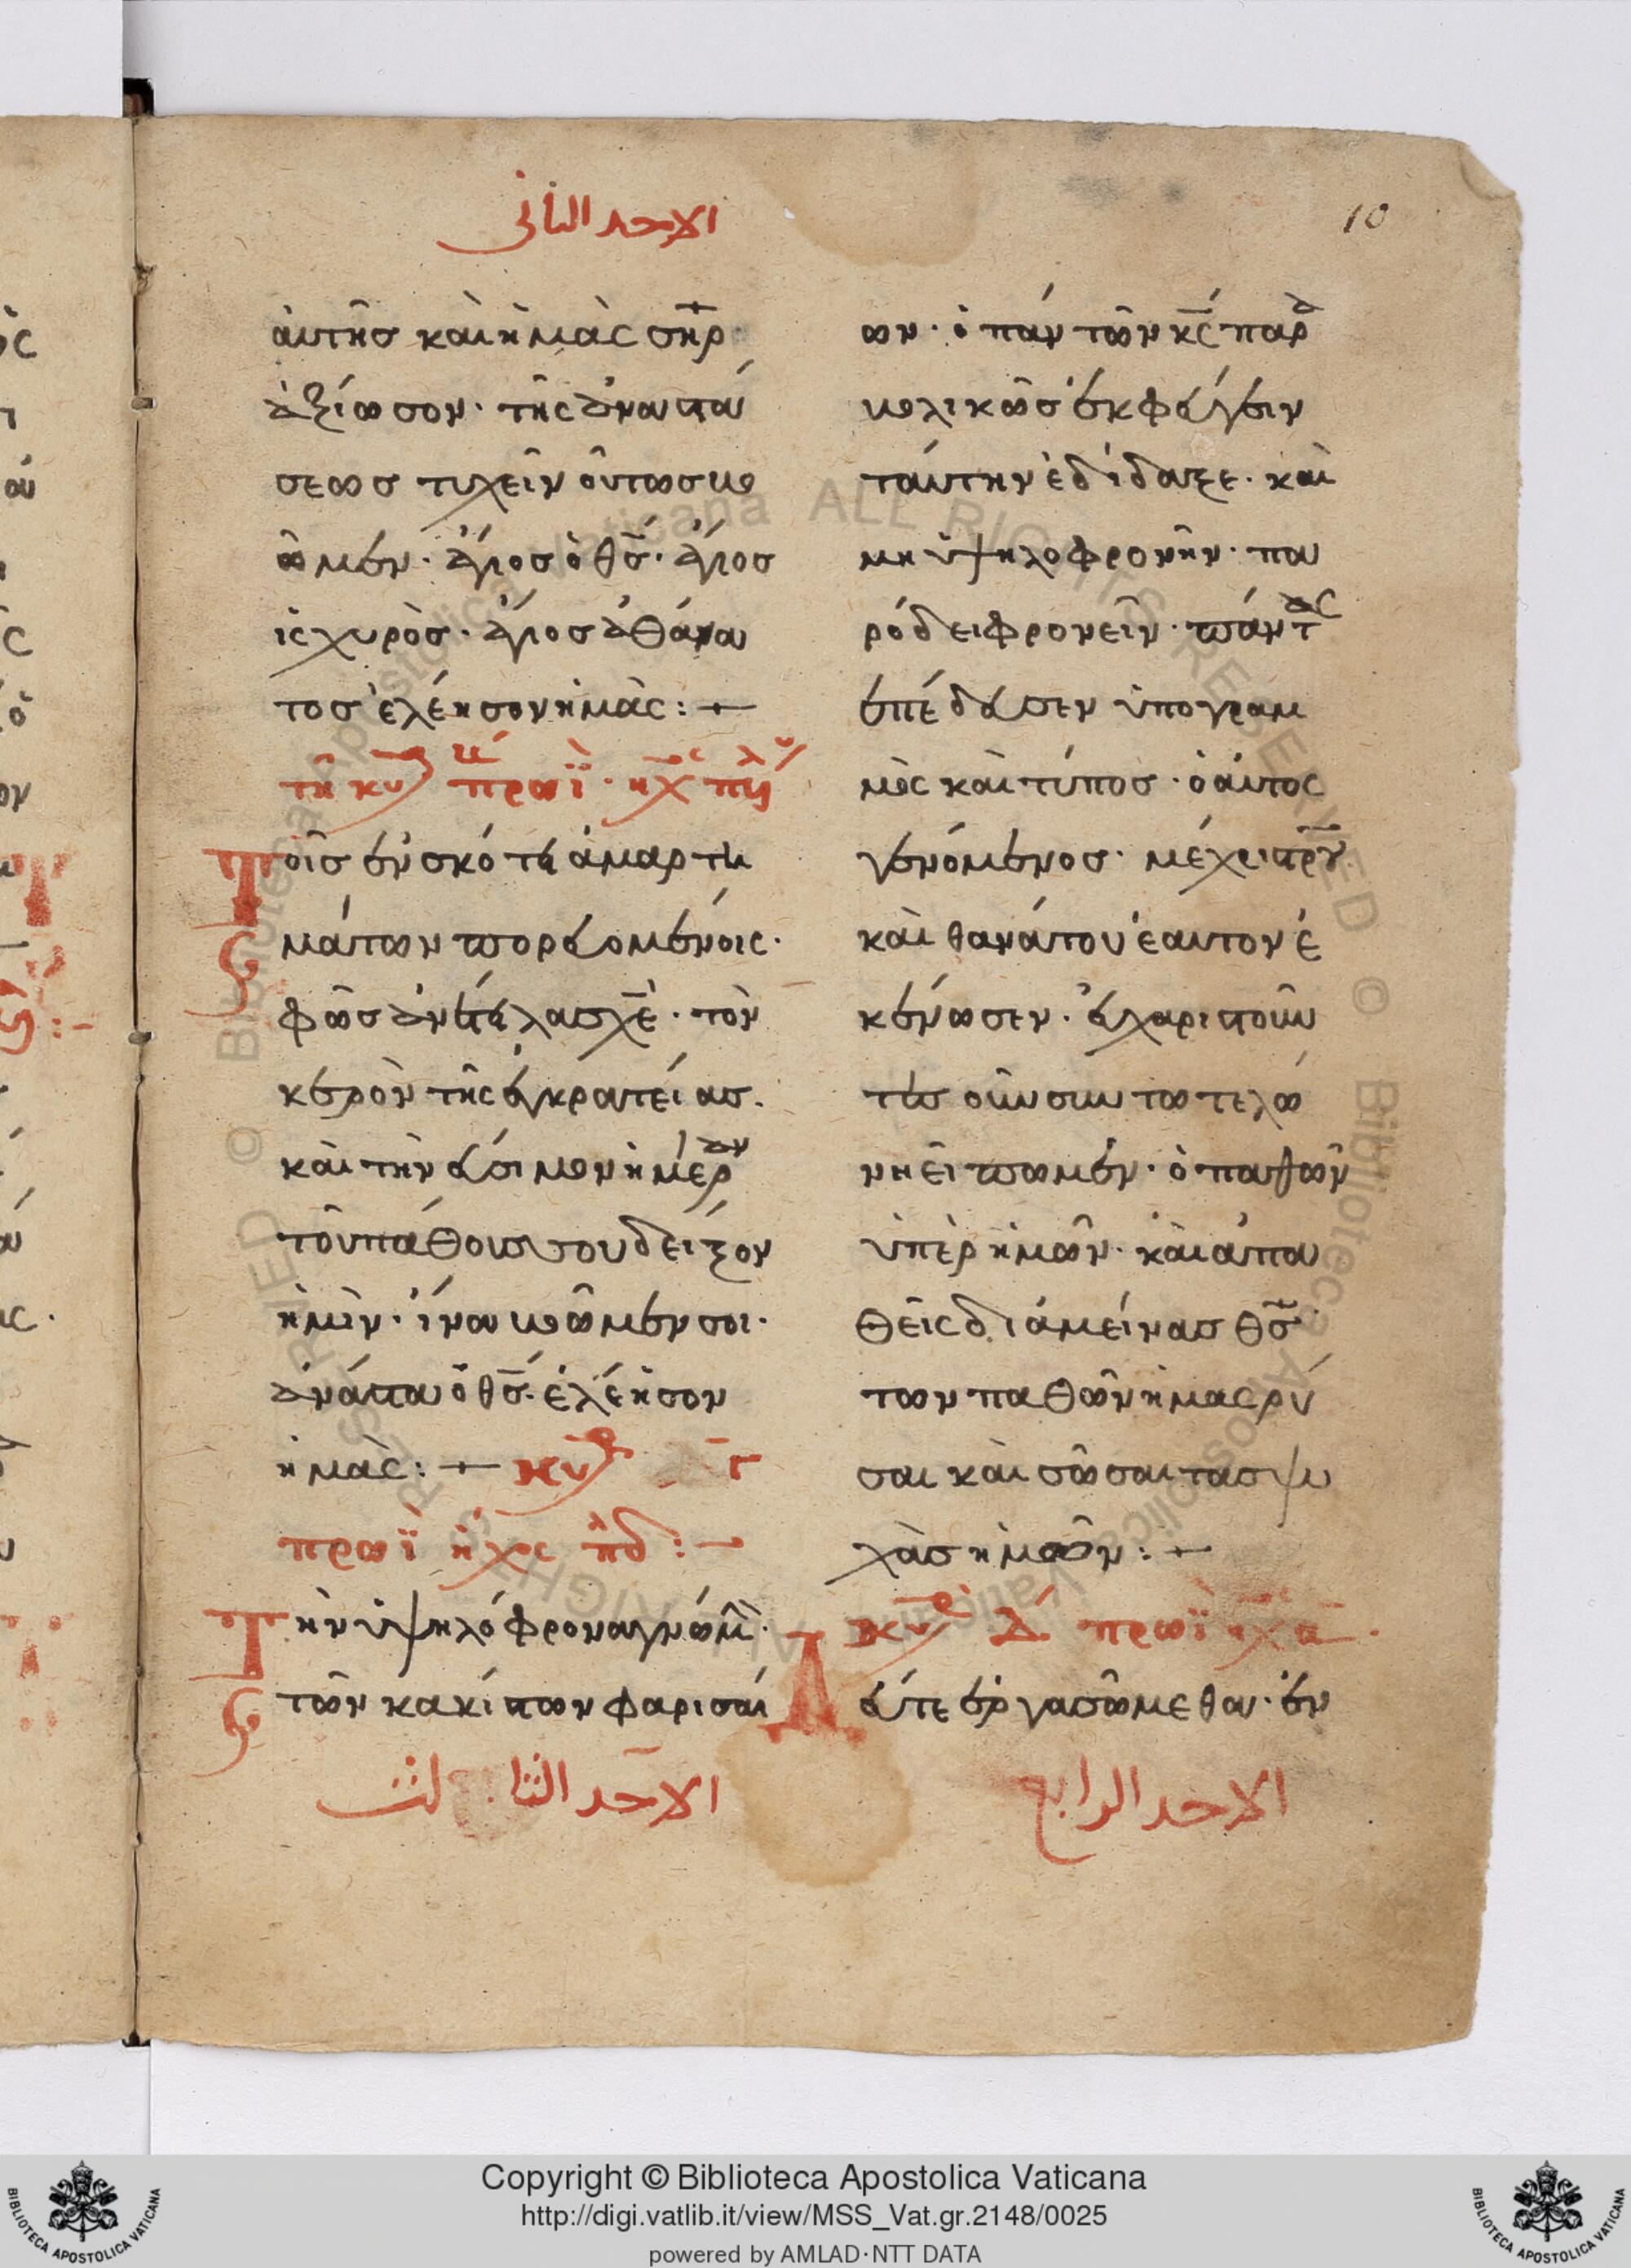 الاحد الثانى
10
ἀυτῆσ καὶ ἡμὰς σῆρ
ἀξίωσον· τῆς ἀναστά
σεωσ τυχεῖν ὅυτωσ βο
ῶμεν· ἅγιοσ ὁ θσ̅· ἅγιοσ
ἰςχυρὸσ· ἅγιοσ ἀθάνα
τοσ ἐλέησον ἡμὰς:
πρωῒ·
Τοῖσ ἐν σκότει ἁμαρτη
μάτων πορευομένοις·
φῶσ ἀνέτειλασ χε̅· τὸν
καιρὸν τῆς ἐγκρατείασ.
καὶ τὴν εὔσιμον ἡμέραν
τοῦ πάθουσ σου δεῖξον
ἡμὶν· ἵνα βοῶμεν σοι·
ἀνάστα ὁ θσ̅· ἐλέησον
ἡμὰς: κυ γ̅
πρωῒ ἦχος πδ:
Τὴν ὑψηλόφρονα γνώμ·
τῶν κακίστων φαρισαί
ων· ὁ πάντων κς̅ παρ
βολικῶσ ἐκφεύγειν
ταύτην ἐδίδαξε· καὶ
μη ὑψηλοφρονῆν· πα
ρό δει φρονεῖν· πάντας
ἐπέδευσεν ὑπογραμ
μὸς καὶ τύποσ· ὁ ἀυτος
γενόμενοσ· μέχρι στρυ
καὶ θανάτου ἑαυτον ἐ
κένωσεν· ἐυχαριστοῦν
τεσ οὖν συν τω τελώ
νη εἴπωμεν· ὁ παθῶν
ὑπὲρ ἡμῶν· καὶ ἀπα
θεῖς διάμείνασ θσ̅·
των παθῶν ἡμας ρύ
σαι καὶ σῶσαι τασ ψυ
χὰσ ἡμῶν:
κυ Δ πρωῒ ηχ α̅·
Δεύτε ἐργασῶμεθα· ἐν
الاحد الثالث
الاحد الرابع
Copyright © Biblioteca Apostolica Vaticana
http://digi.vatlib.it/view/MSS_Vat.gr.2148/0025
powered by AMLAD·NTT DATA
BIBLIOTECA APOSTOLICA VATICANA
BIBLIOTECA APOSTOLICA VATICANA